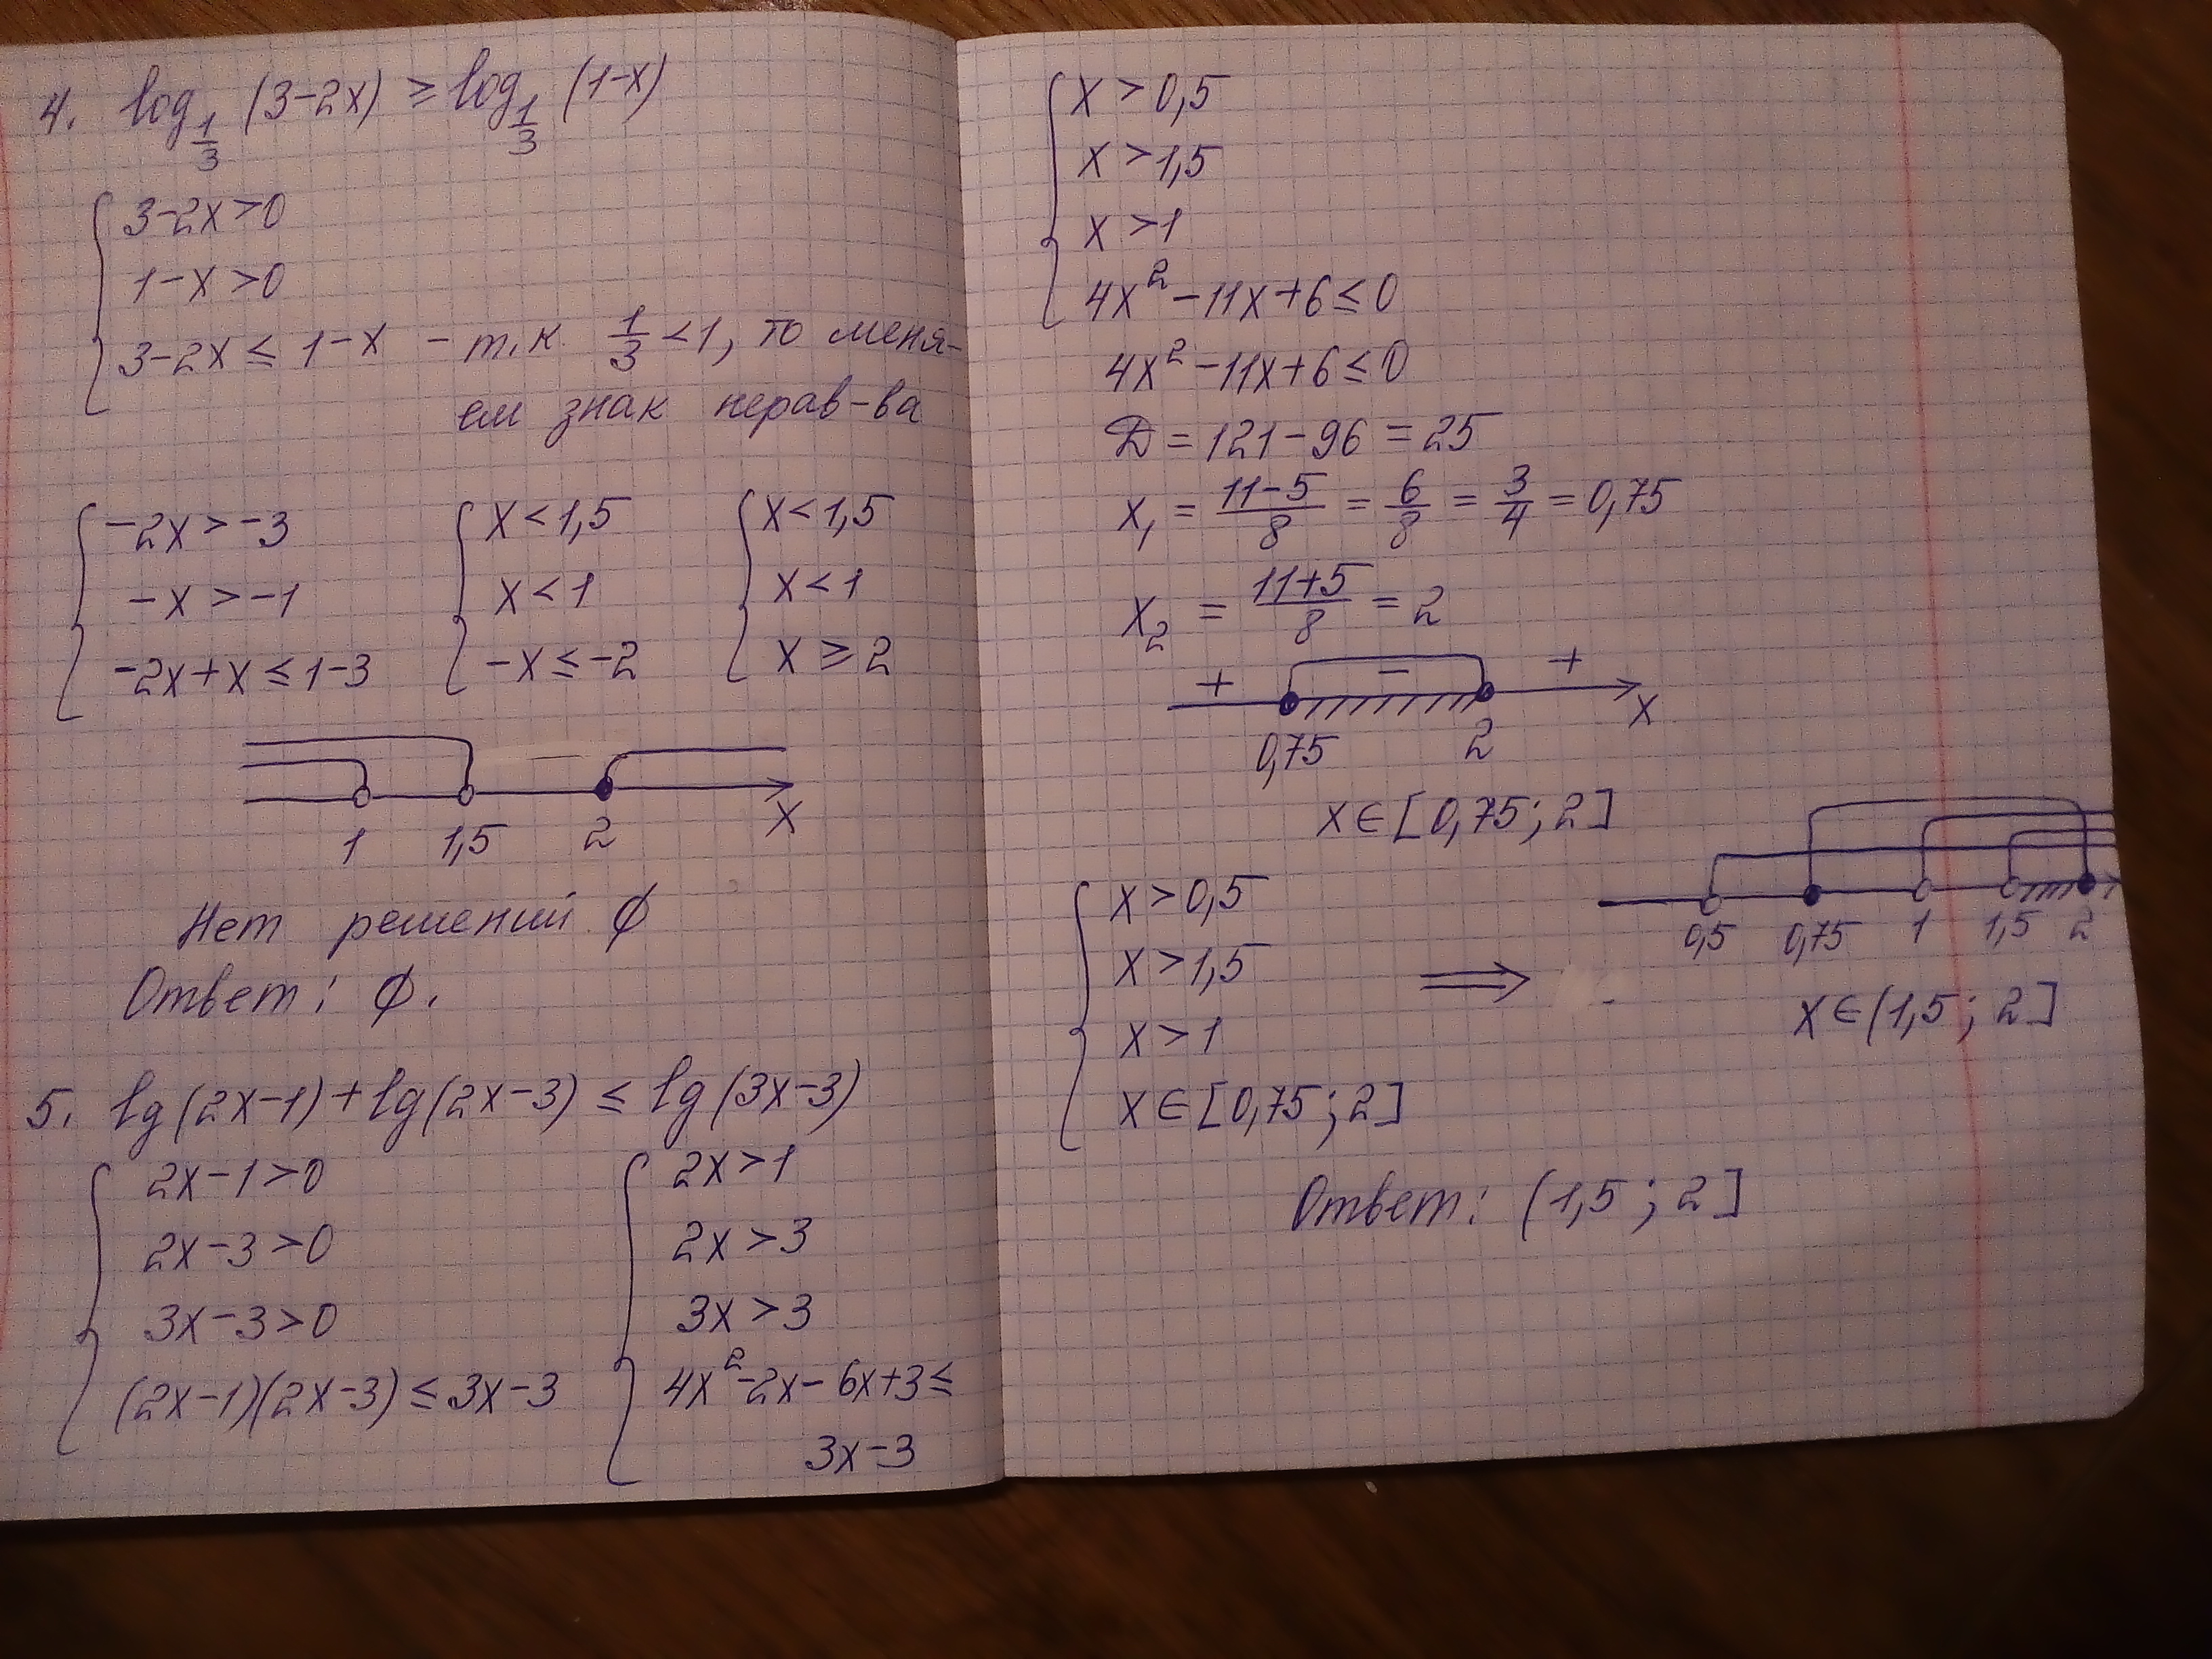 4. log_{1/3} (3-2x) ≥ log_{1/3} (1-x)
{ 3-2x>0
1-x>0
3-2x ≤ 1-x - т.к. 1/3 <1, то меня-
ем знак нерав-ва
{ -2x>-3 { x<1,5 { x<1,5
-x>-1 x<1 x<1
-2x+x ≤ 1-3 -x ≤ -2 x ≥ 2
1 1,5 2 x
Нет решений ∅
Ответ: ∅.
5. lg(2x-1)+lg(2x-3) ≤ lg(3x-3)
{ 2x-1>0 { 2x>1
2x-3>0 2x>3
3x-3>0 3x>3
(2x-1)(2x-3) ≤ 3x-3 4x²-2x-6x+3 ≤
3x-3
{ x>0,5
x>1,5
x>1
4x²-11x+6 ≤ 0
4x²-11x+6 ≤ 0
D = 121-96 = 25
x₁ = (11-5)/8 = 6/8 = 3/4 = 0,75
x₂ = (11+5)/8 = 2
+ - +
0,75 2 x
x∈[0,75; 2]
{ x>0,5
x>1,5 ⟹
x>1
x∈[0,75; 2]
0,5 0,75 1 1,5 2
x∈(1,5; 2]
Ответ: (1,5; 2]